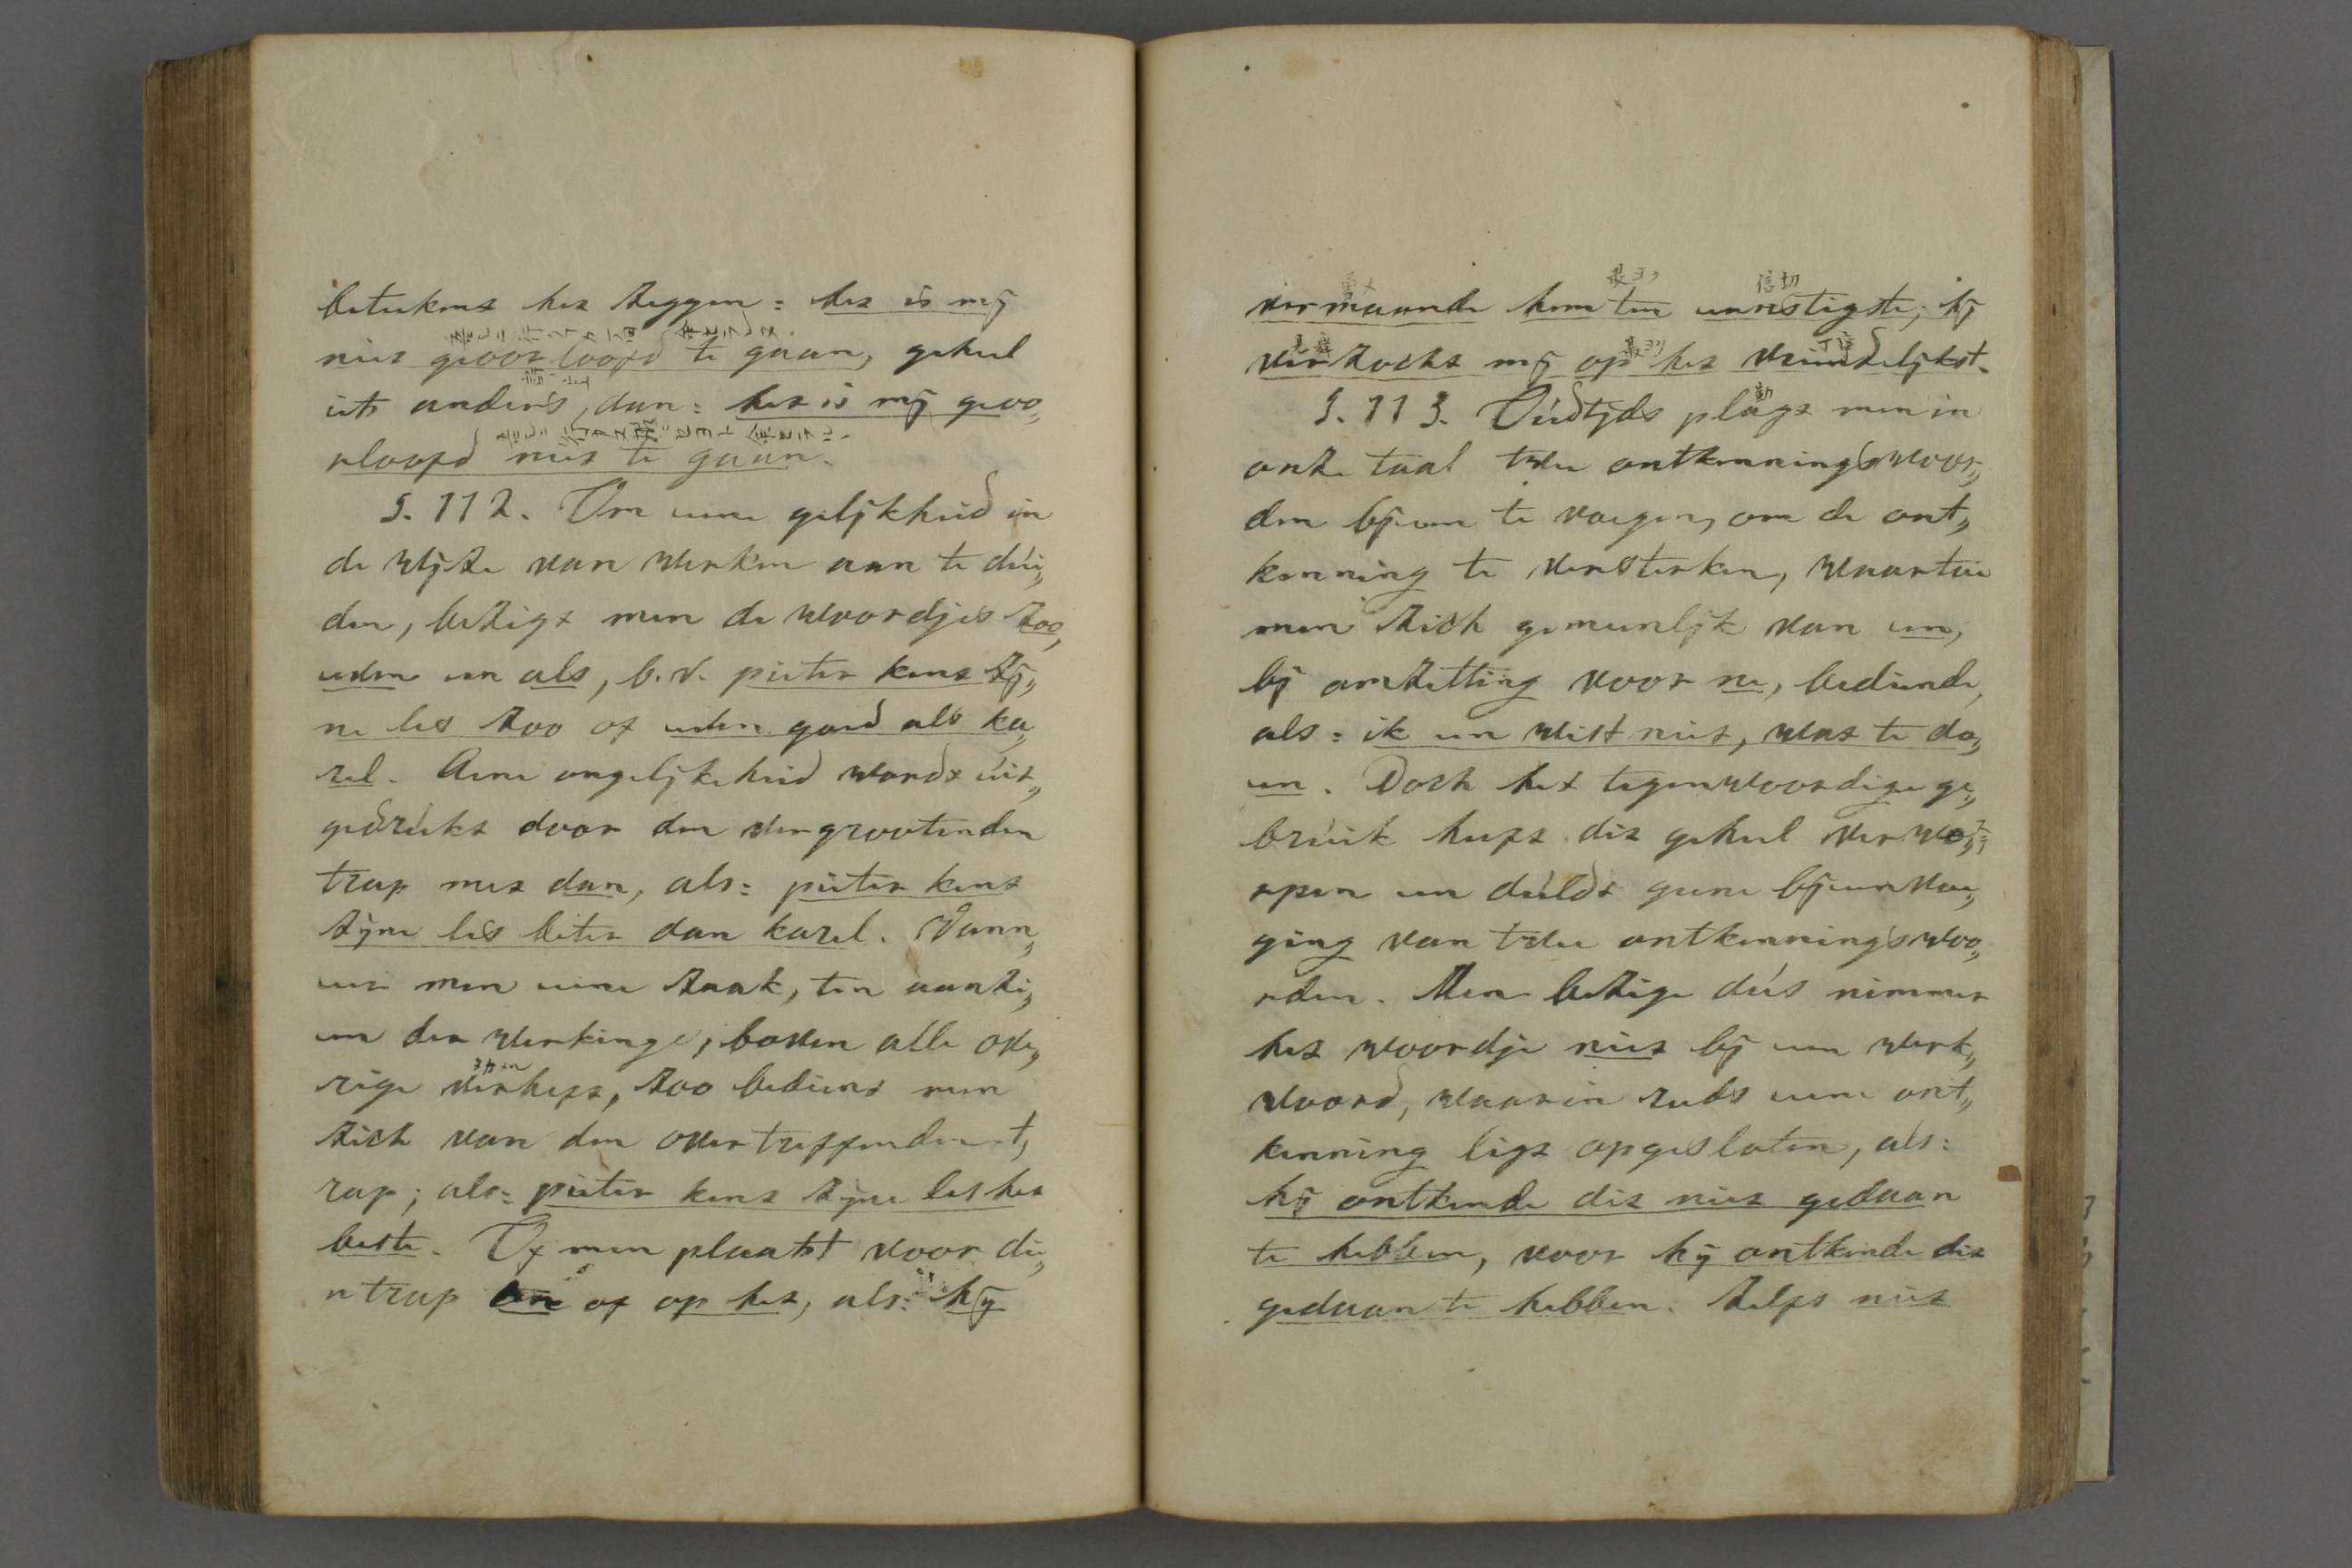 beteekent het zeggen: het is mij
niet geoorloofd te gaan, geheel
iets anders, dan: het is mij geoo„
rloofd niet te gaan.
§. 112. Om eene gelijkheid in
de wijze van werken aan te dúi„
den, bezigt men de woordjes zoo,
even en als, b.v. pieter kent zij„
ne les zoo of even goed als ka„
rel. Eene ongelijkheid wordt úit„
gedrúkt door den vergrootenden
trap met dan, als: pieter kent
zijne les beter dan karel. Wann„
eer men eene zaak, ten aanzi„
en der werkinge, boven alle ove„
rige verheft, zoo bedient men
zich van den overtreffenden t„
rap; als: pieter kent zijne les het
beste. Of men plaatst voor die„
n trap ten of op het, als: hij
vermaande hem ten ernstigste; hij
最ヨリ
信切
verzocht mij op het vriendelijkst.
§. 113. Oúdtijds plagt men in
onze taal twee ontkenningswoor„
den bijeen te voegen, om de ont„
kenning te versterken, waartoe
men zich gemeenlijk van en,
bij omzetting voor ne, bediende,
als: ik en wist niet, wat te do„
en. Doch het tegenwoordige ge„
brúik heeft dit geheel verwo„
rpen en dúldt geene bijeenvoe„
ging van twee ontkenningswoo„
rden. Men bezige dús nimmer
het woordje niet bij een werk„
woord, waarin reeds eene ont„
kenning ligt opgesloten, als:
hij ontkende dit niet gedaan
te hebben, voor hij ontkende dit
gedaan te hebben. Zelfs niet